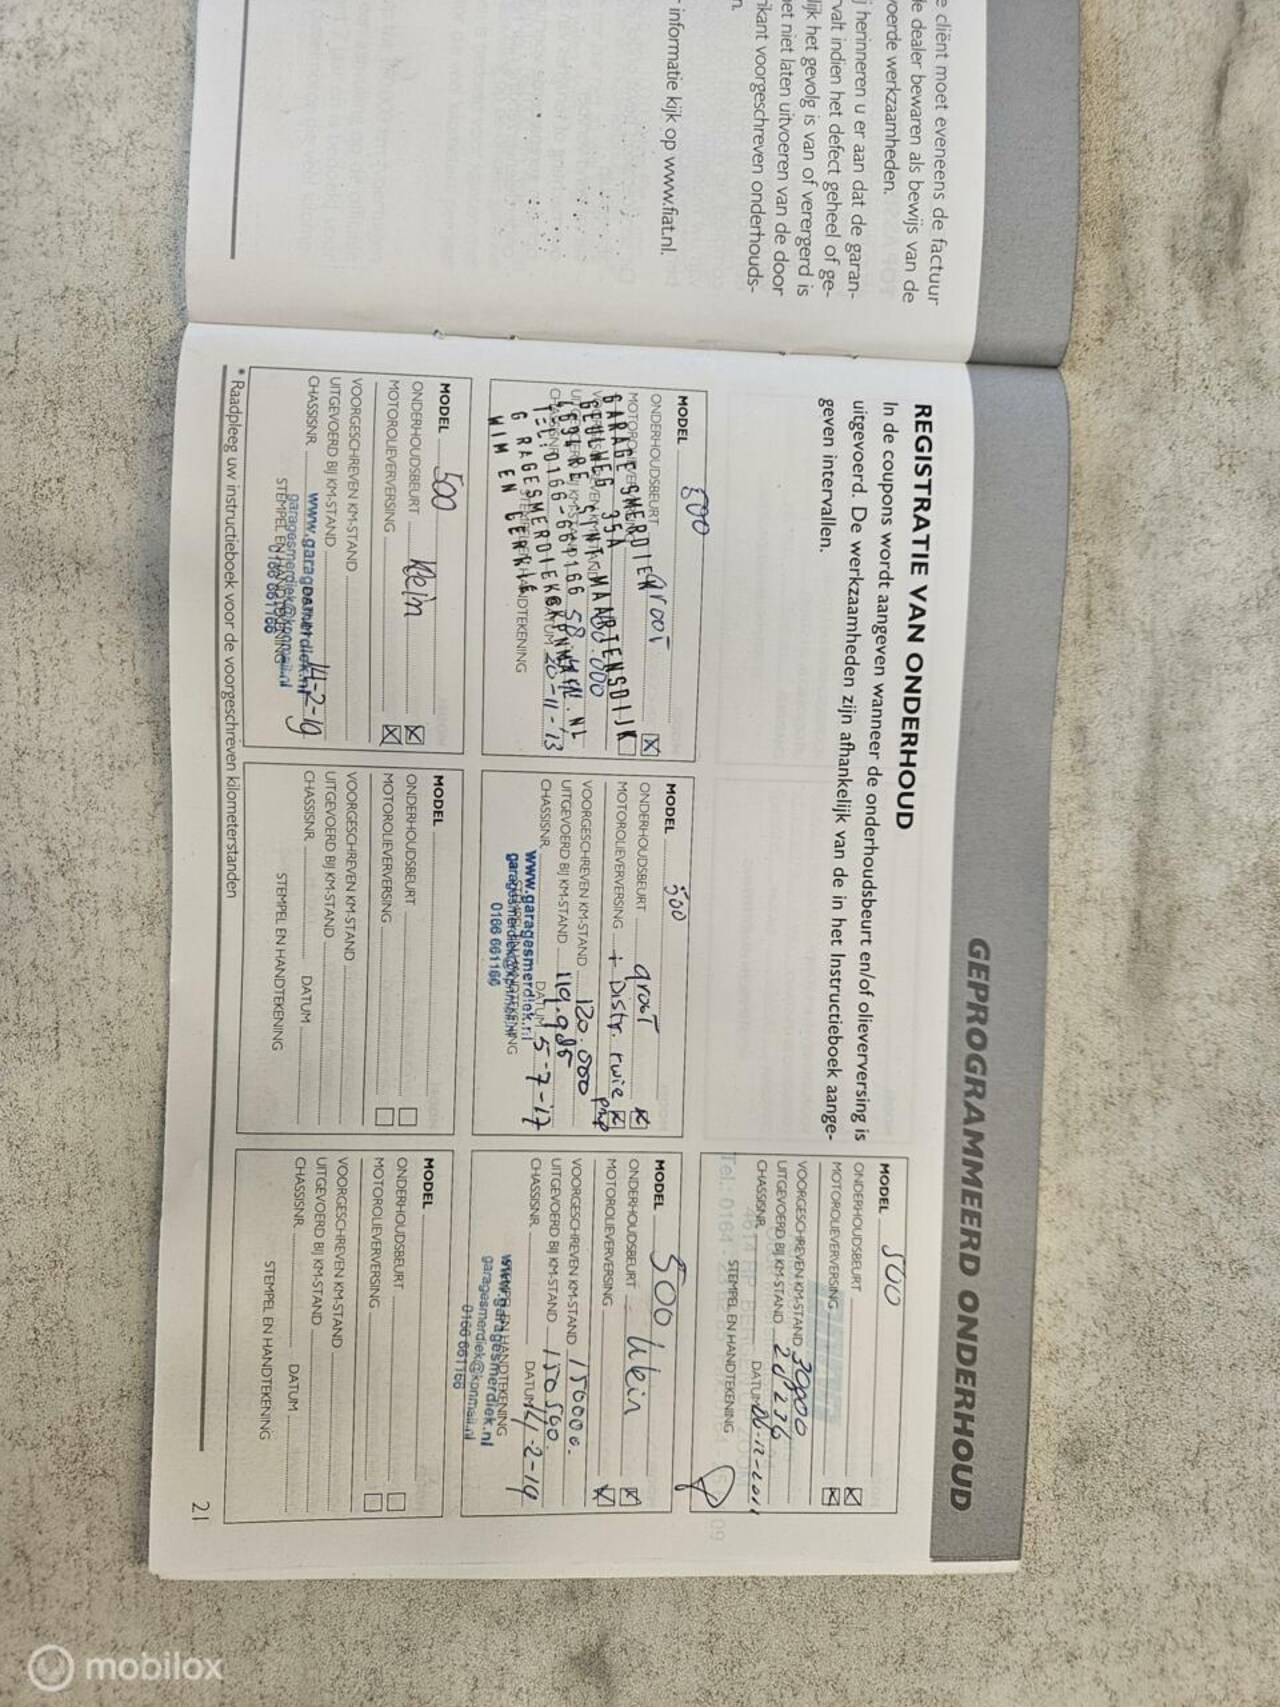 e cliënt moet eveneens de factuur
de dealer bewaren als bewijs van de
voerde werkzaamheden.
j herinneren u er aan dat de garan-
valt indien het defect geheel of ge-
lijk het gevolg is van of verergerd is
et niet laten uitvoeren van de door
ikant voorgeschreven onderhouds-
n.
r informatie kijk op www.fiat.nl.
GEPROGRAMMEERD ONDERHOUD
REGISTRATIE VAN ONDERHOUD
In de coupons wordt aangeven wanneer de onderhoudsbeurt en/of olieverversing is
uitgevoerd. De werkzaamheden zijn afhankelijk van de in het Instructieboek aange-
geven intervallen.
MODEL 500
ONDERHOUDSBEURT
MOTOROLIEVERVERSING
VOORGESCHREVEN KM-STAND 30000
UITGEVOERD BIJ KM-STAND
CHASSISNR. DATUM
STEMPEL EN HANDTEKENING
MODEL 500
ONDERHOUDSBEURT groot
GARAGE SMERDIEK
GEULWEG 35A
SINT MAARTENSDIJK
TEL:0166-661166
WIM EN GERRIE
DATUM 20-11-'13
HANDTEKENING
MODEL 500
ONDERHOUDSBEURT groot
MOTOROLIEVERVERSING + Distr. riem
VOORGESCHREVEN KM-STAND 120.000
UITGEVOERD BIJ KM-STAND 119.985
CHASSISNR. DATUM 5-7-'17
www.garagesmerdiek.nl
garagesmerdiek@kpnmail.nl
0166 661166
MODEL 500
ONDERHOUDSBEURT klein
MOTOROLIEVERVERSING
VOORGESCHREVEN KM-STAND 150000.
UITGEVOERD BIJ KM-STAND 150560.
CHASSISNR. DATUM 14-2-19
STEMPEL EN HANDTEKENING
www.garagesmerdiek.nl
garagesmerdiek@kpnmail.nl
0166 661166
MODEL 500
ONDERHOUDSBEURT klein
MOTOROLIEVERVERSING
VOORGESCHREVEN KM-STAND
UITGEVOERD BIJ KM-STAND
CHASSISNR. DATUM 14-2-19
STEMPEL EN HANDTEKENING
www.garagesmerdiek.nl
garagesmerdiek@kpnmail.nl
0166 661166
MODEL
ONDERHOUDSBEURT
MOTOROLIEVERVERSING
VOORGESCHREVEN KM-STAND
UITGEVOERD BIJ KM-STAND
CHASSISNR. DATUM
STEMPEL EN HANDTEKENING
MODEL
ONDERHOUDSBEURT
MOTOROLIEVERVERSING
VOORGESCHREVEN KM-STAND
UITGEVOERD BIJ KM-STAND
CHASSISNR. DATUM
STEMPEL EN HANDTEKENING
* Raadpleeg uw instructieboek voor de voorgeschreven kilometerstanden
21
mobilox